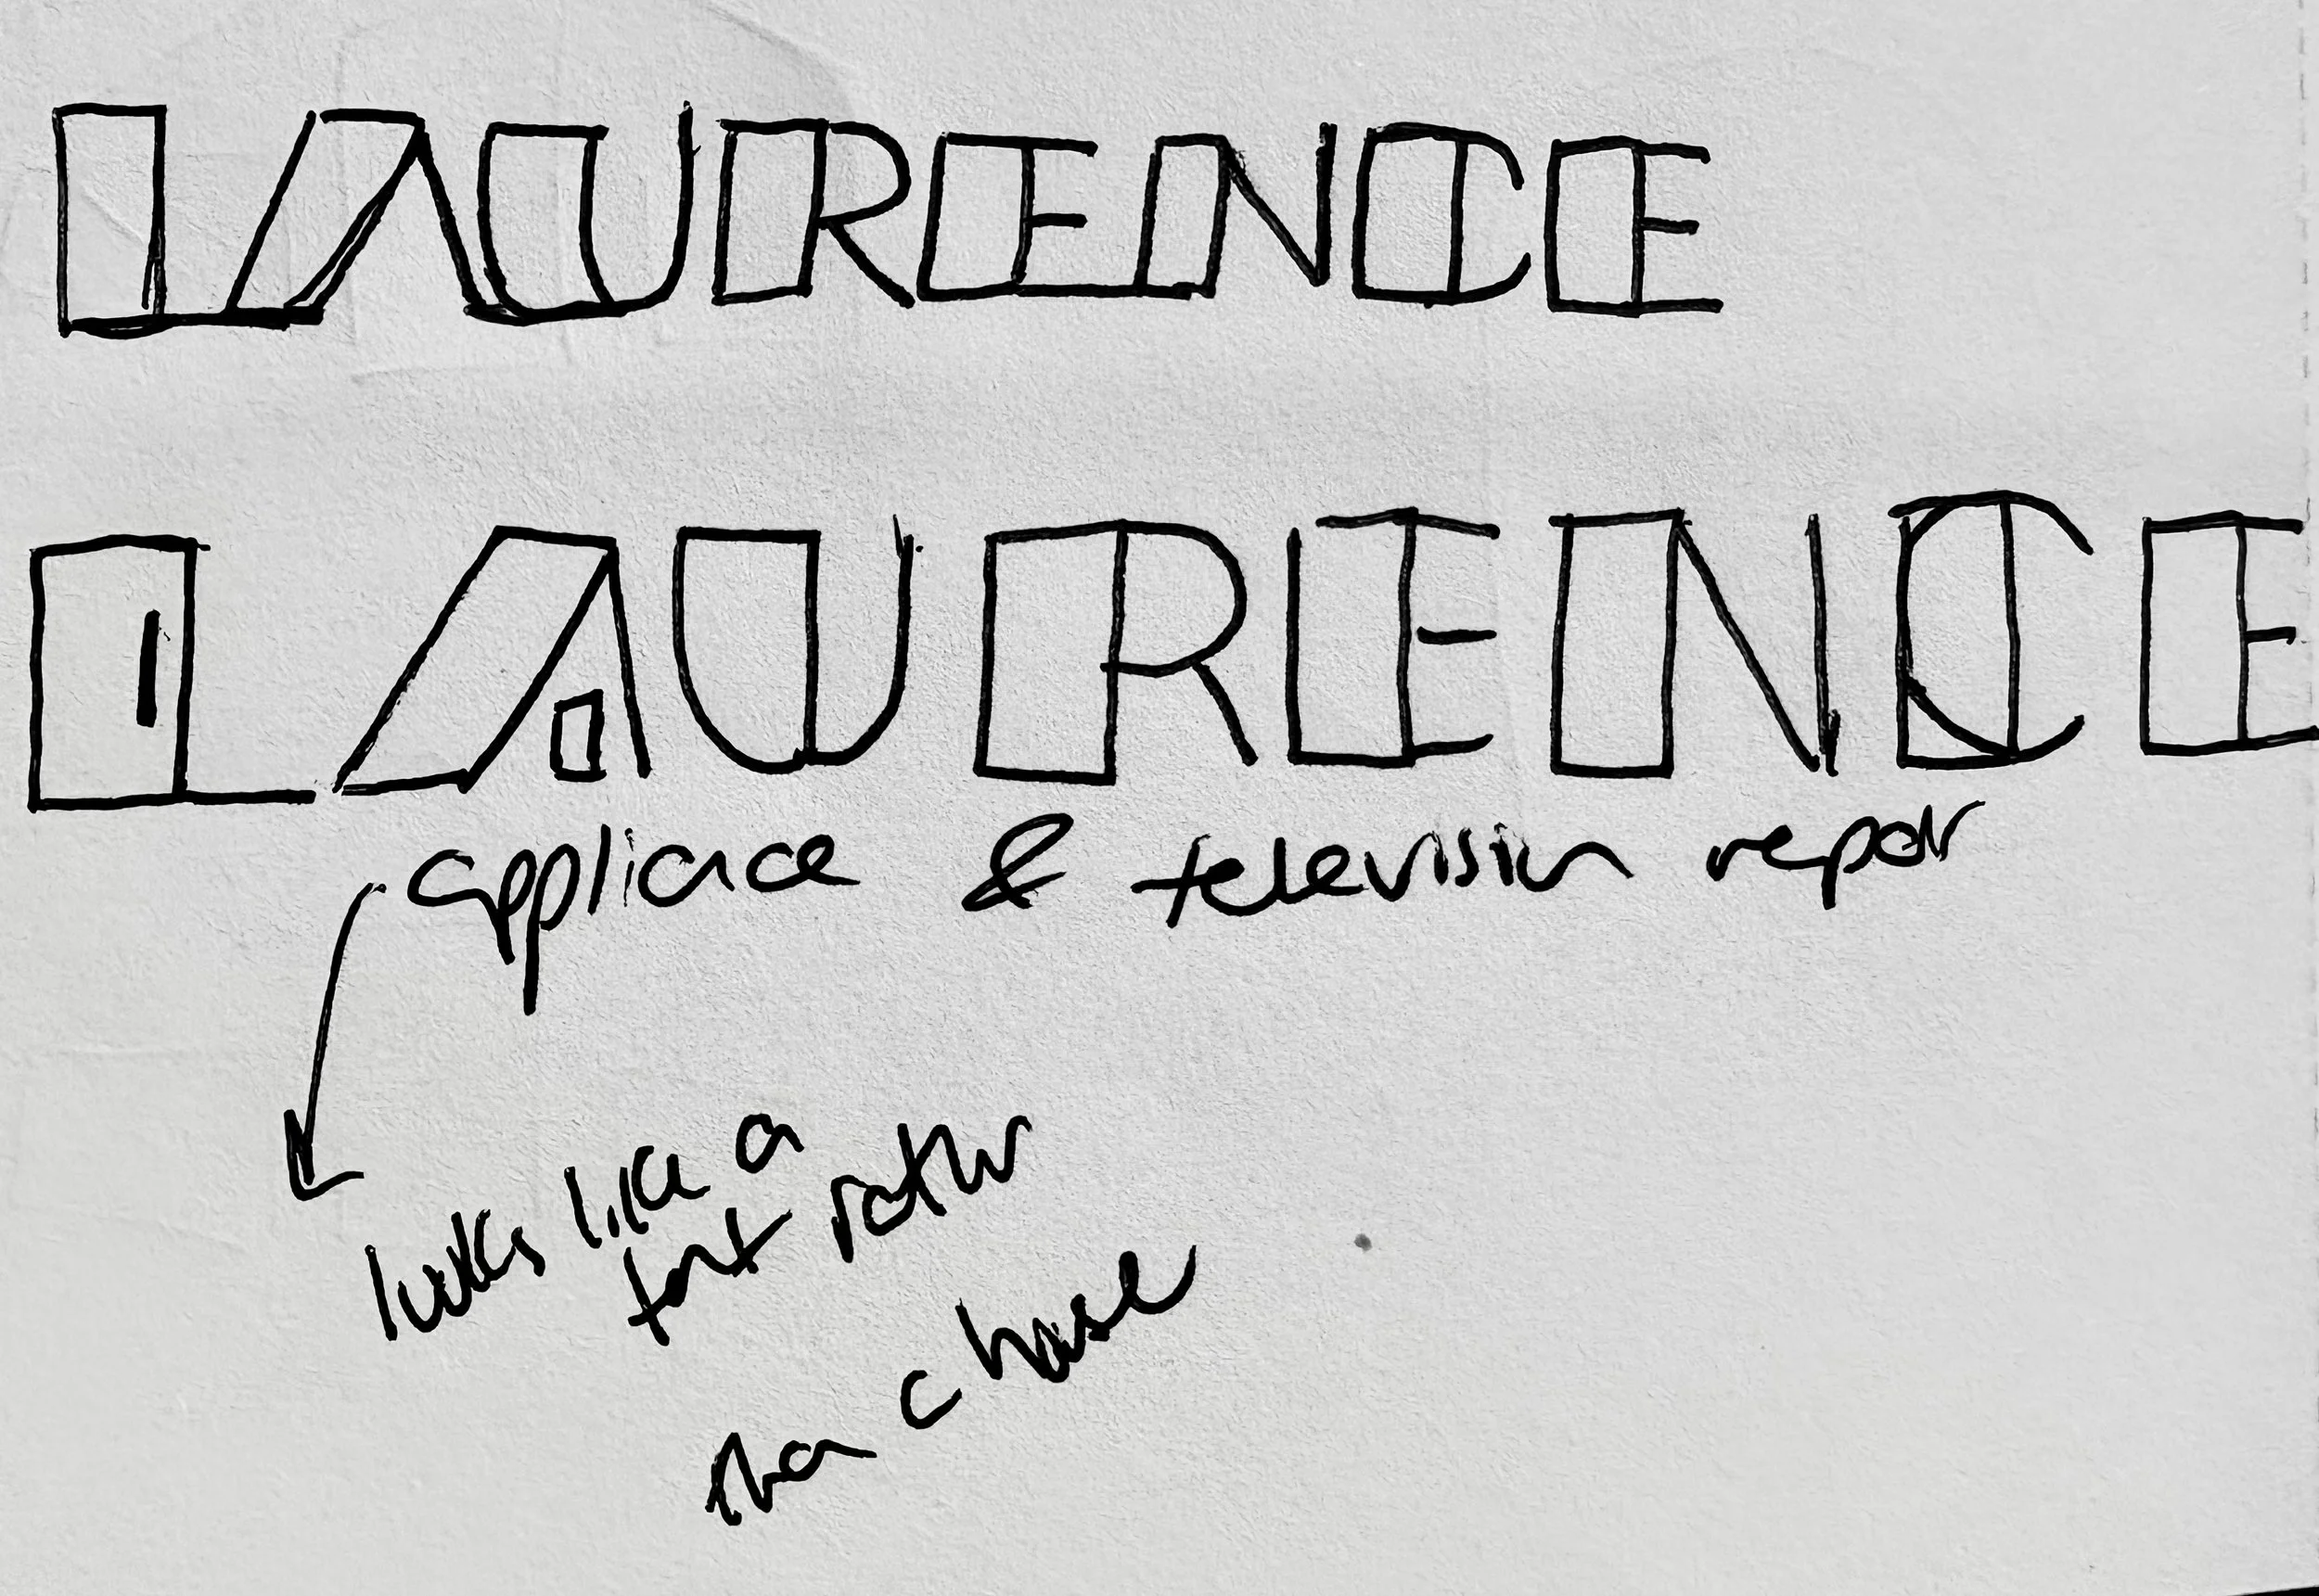 LAURENCE
LAURENCE
appliance & television repair
looks like a
tent rather
than a house